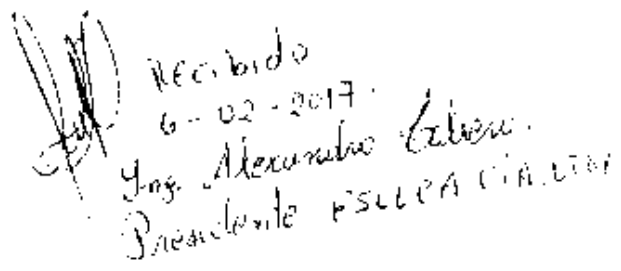 Recibido
6-02-2017.
Ing. Alexandra
Presidente CIA. LTDA